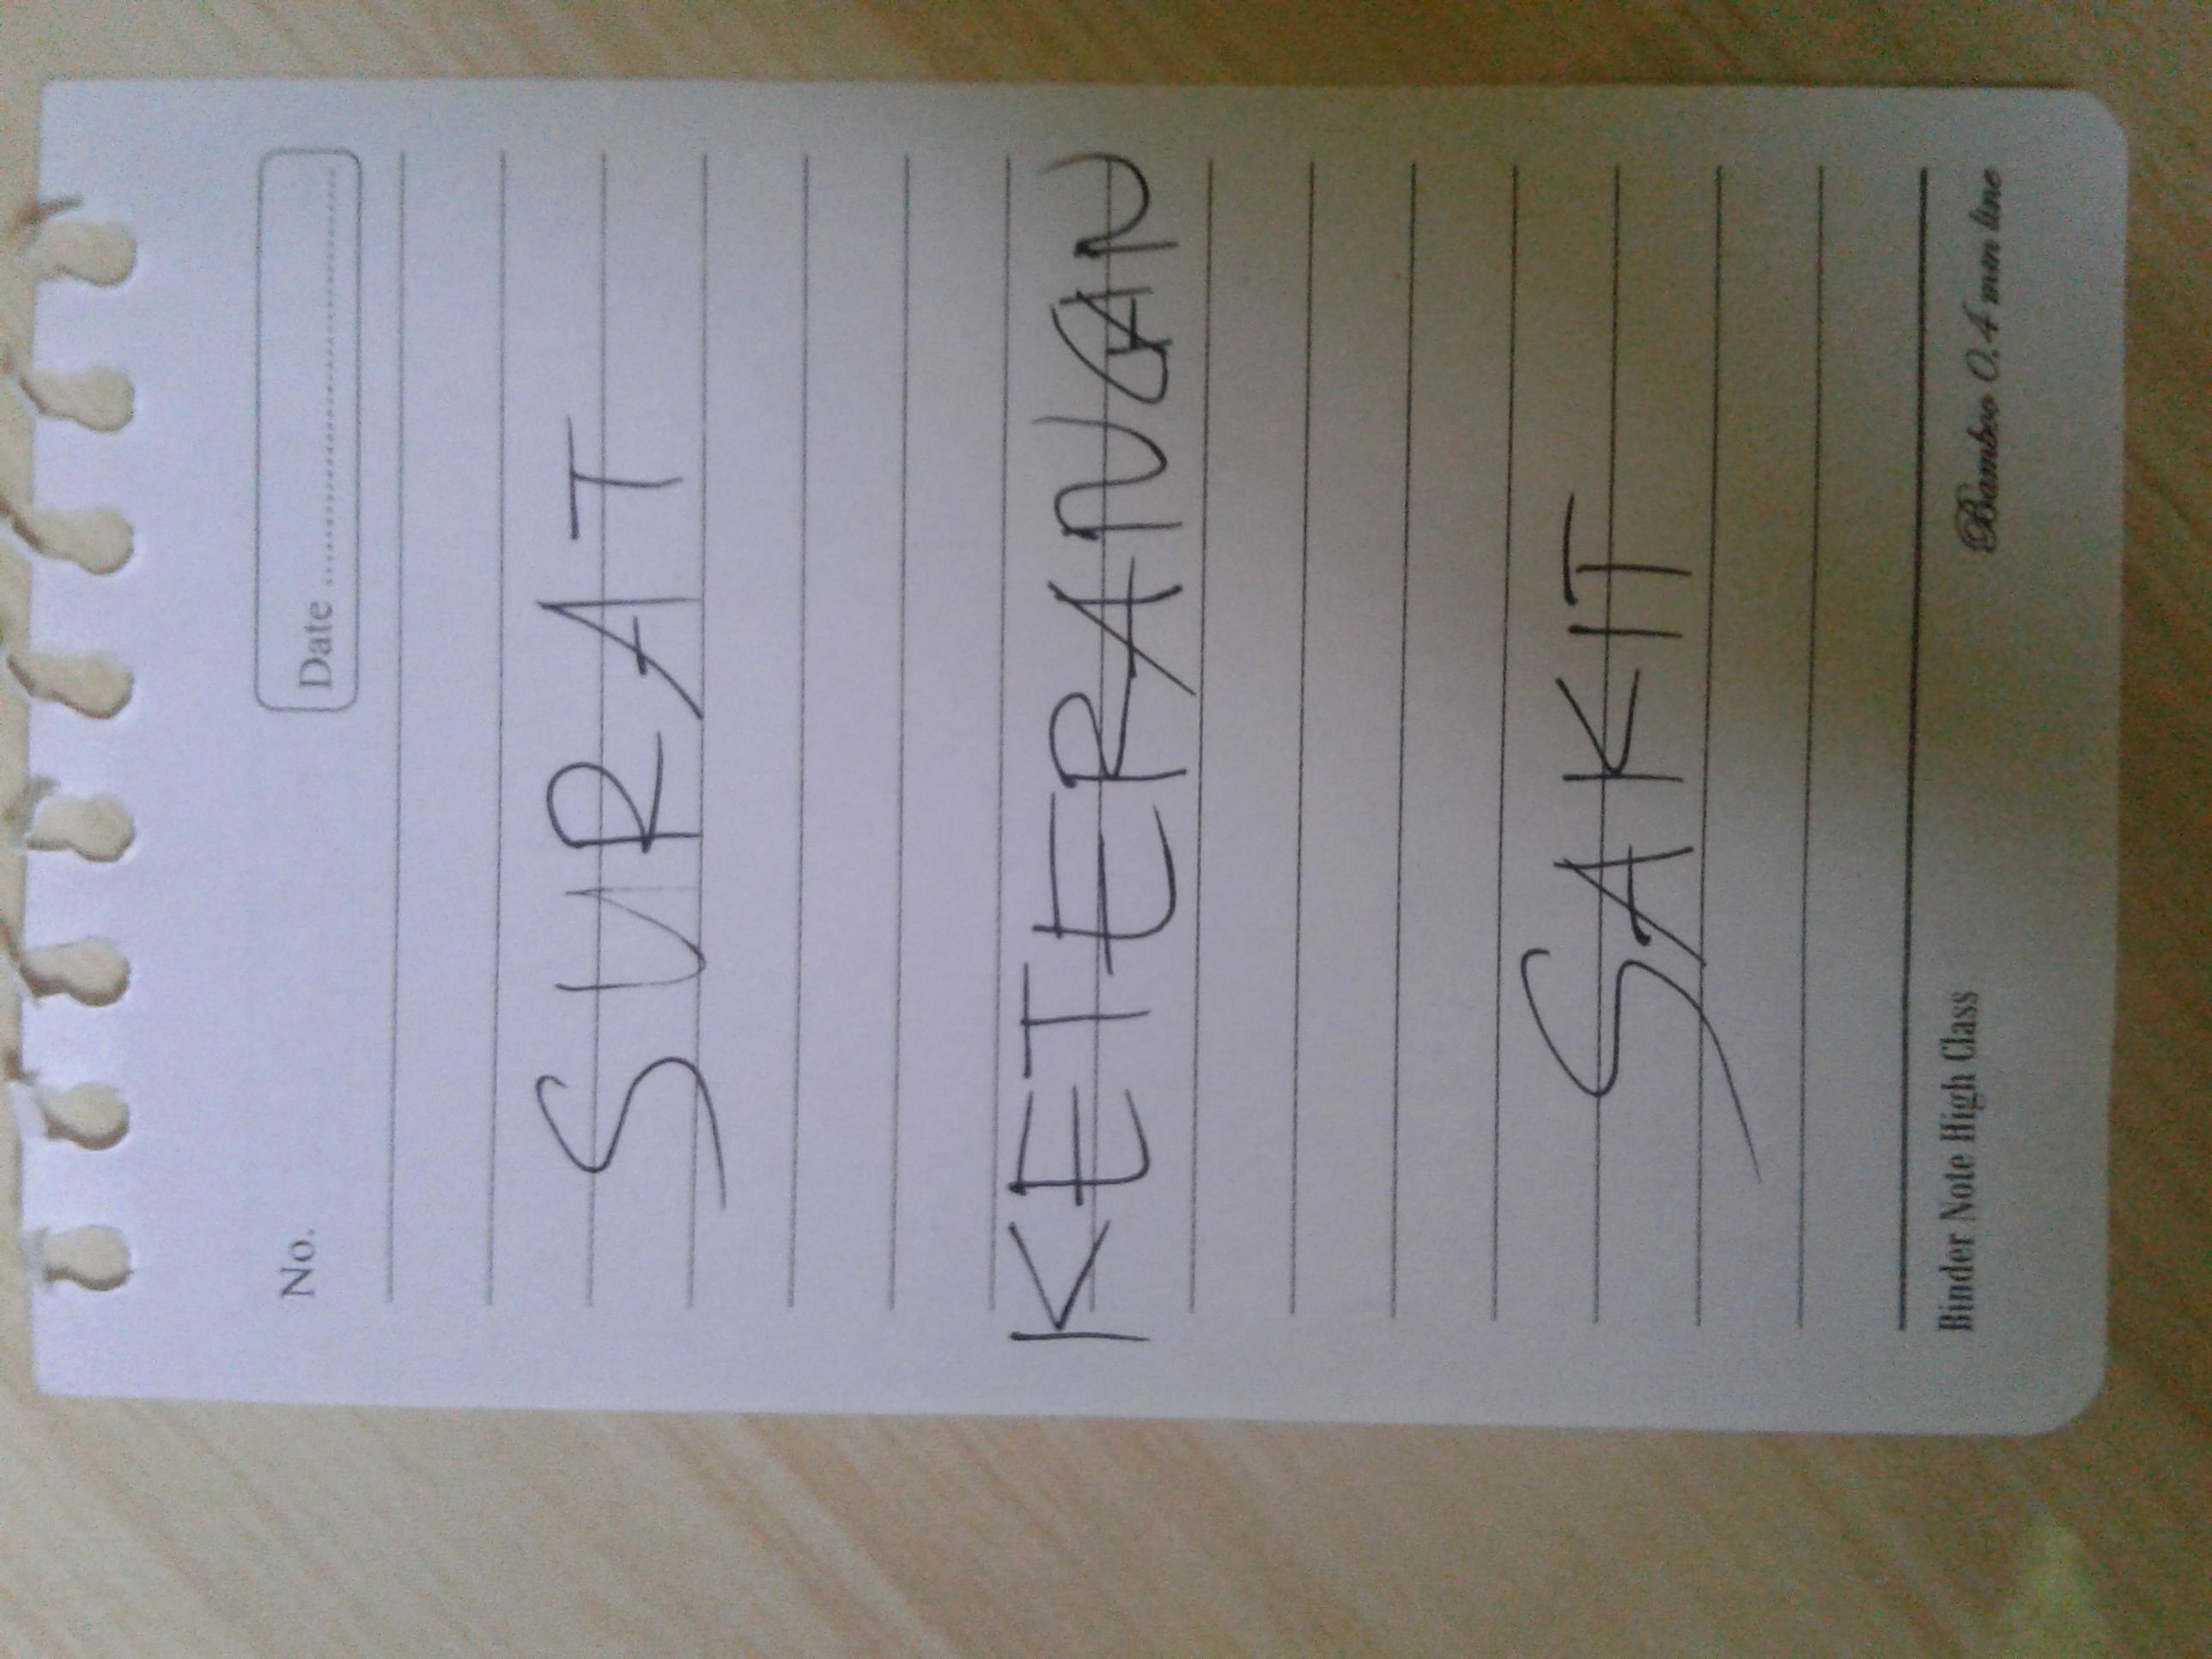 No.
Date
SURAT
KETERANGAN
SAKIT
Binder Note High Class
Bamboo 0.4 mm line